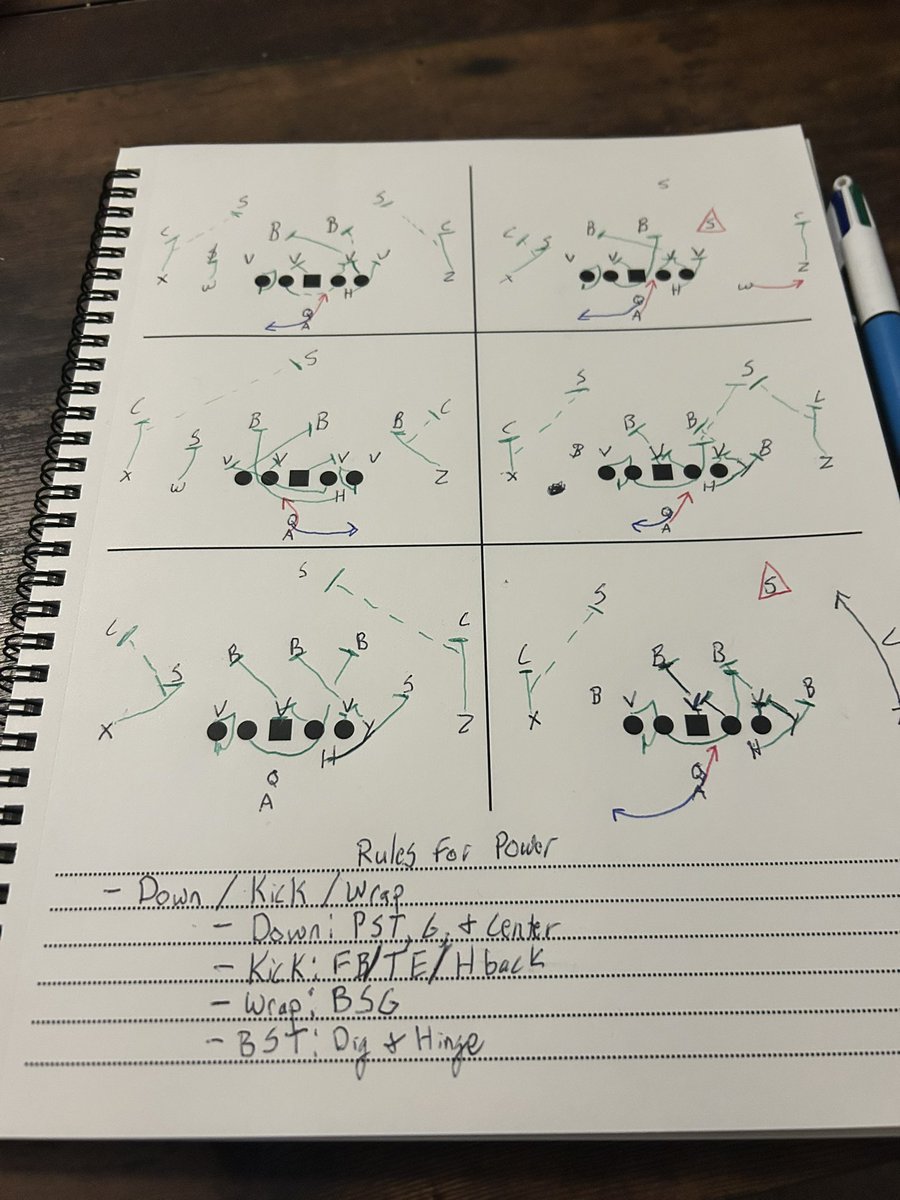 S S
C B B C
V V V V
X W H Z
Q
A
S
C S B B S C
V V V
X W H Z
Q
A
S
C S B B B C
V V V V
X W H Z
Q
A
S S
C B B L
B V V V B
X H Z
Q
A
S
C S B B B S C
V V V
X H Y Z
Q
A
S S
C B B L
B V V V B
X H
Q
A
Rules For Power
- Down / Kick / Wrap
- Down: PST, G, & Center
- Kick: FB/TE/H back
- Wrap: BSG
- BST: Dig & Hinge